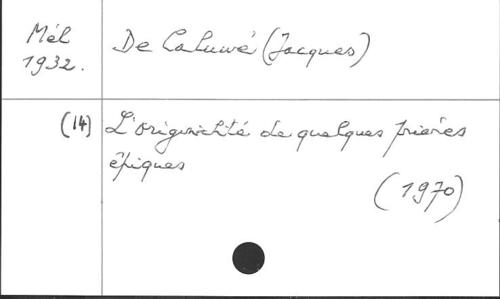 Mél
1932.
De Caluwé (Jacques)
(14)
L'originalité de quelques prières
épiques
(1970)